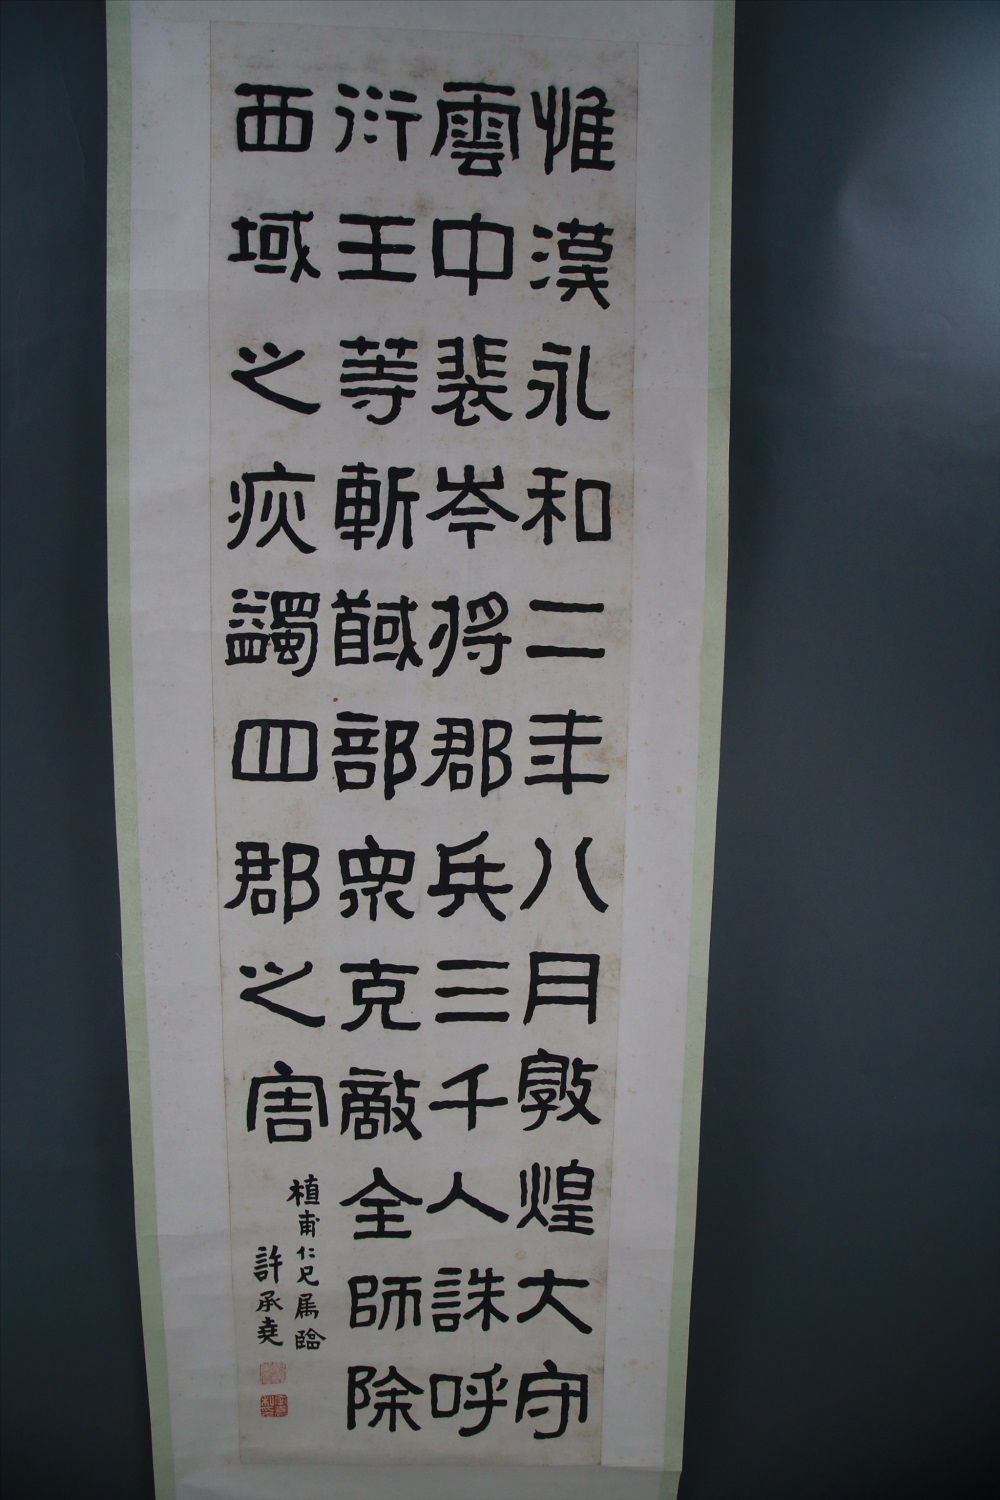 惟漢永和二年八月敦煌大守
雲中裴岑將郡兵三千人誅呼
衍王等斬馘部眾克敵全師除
西域之疢蠲四郡之害
植甫仁兄属臨
許承堯